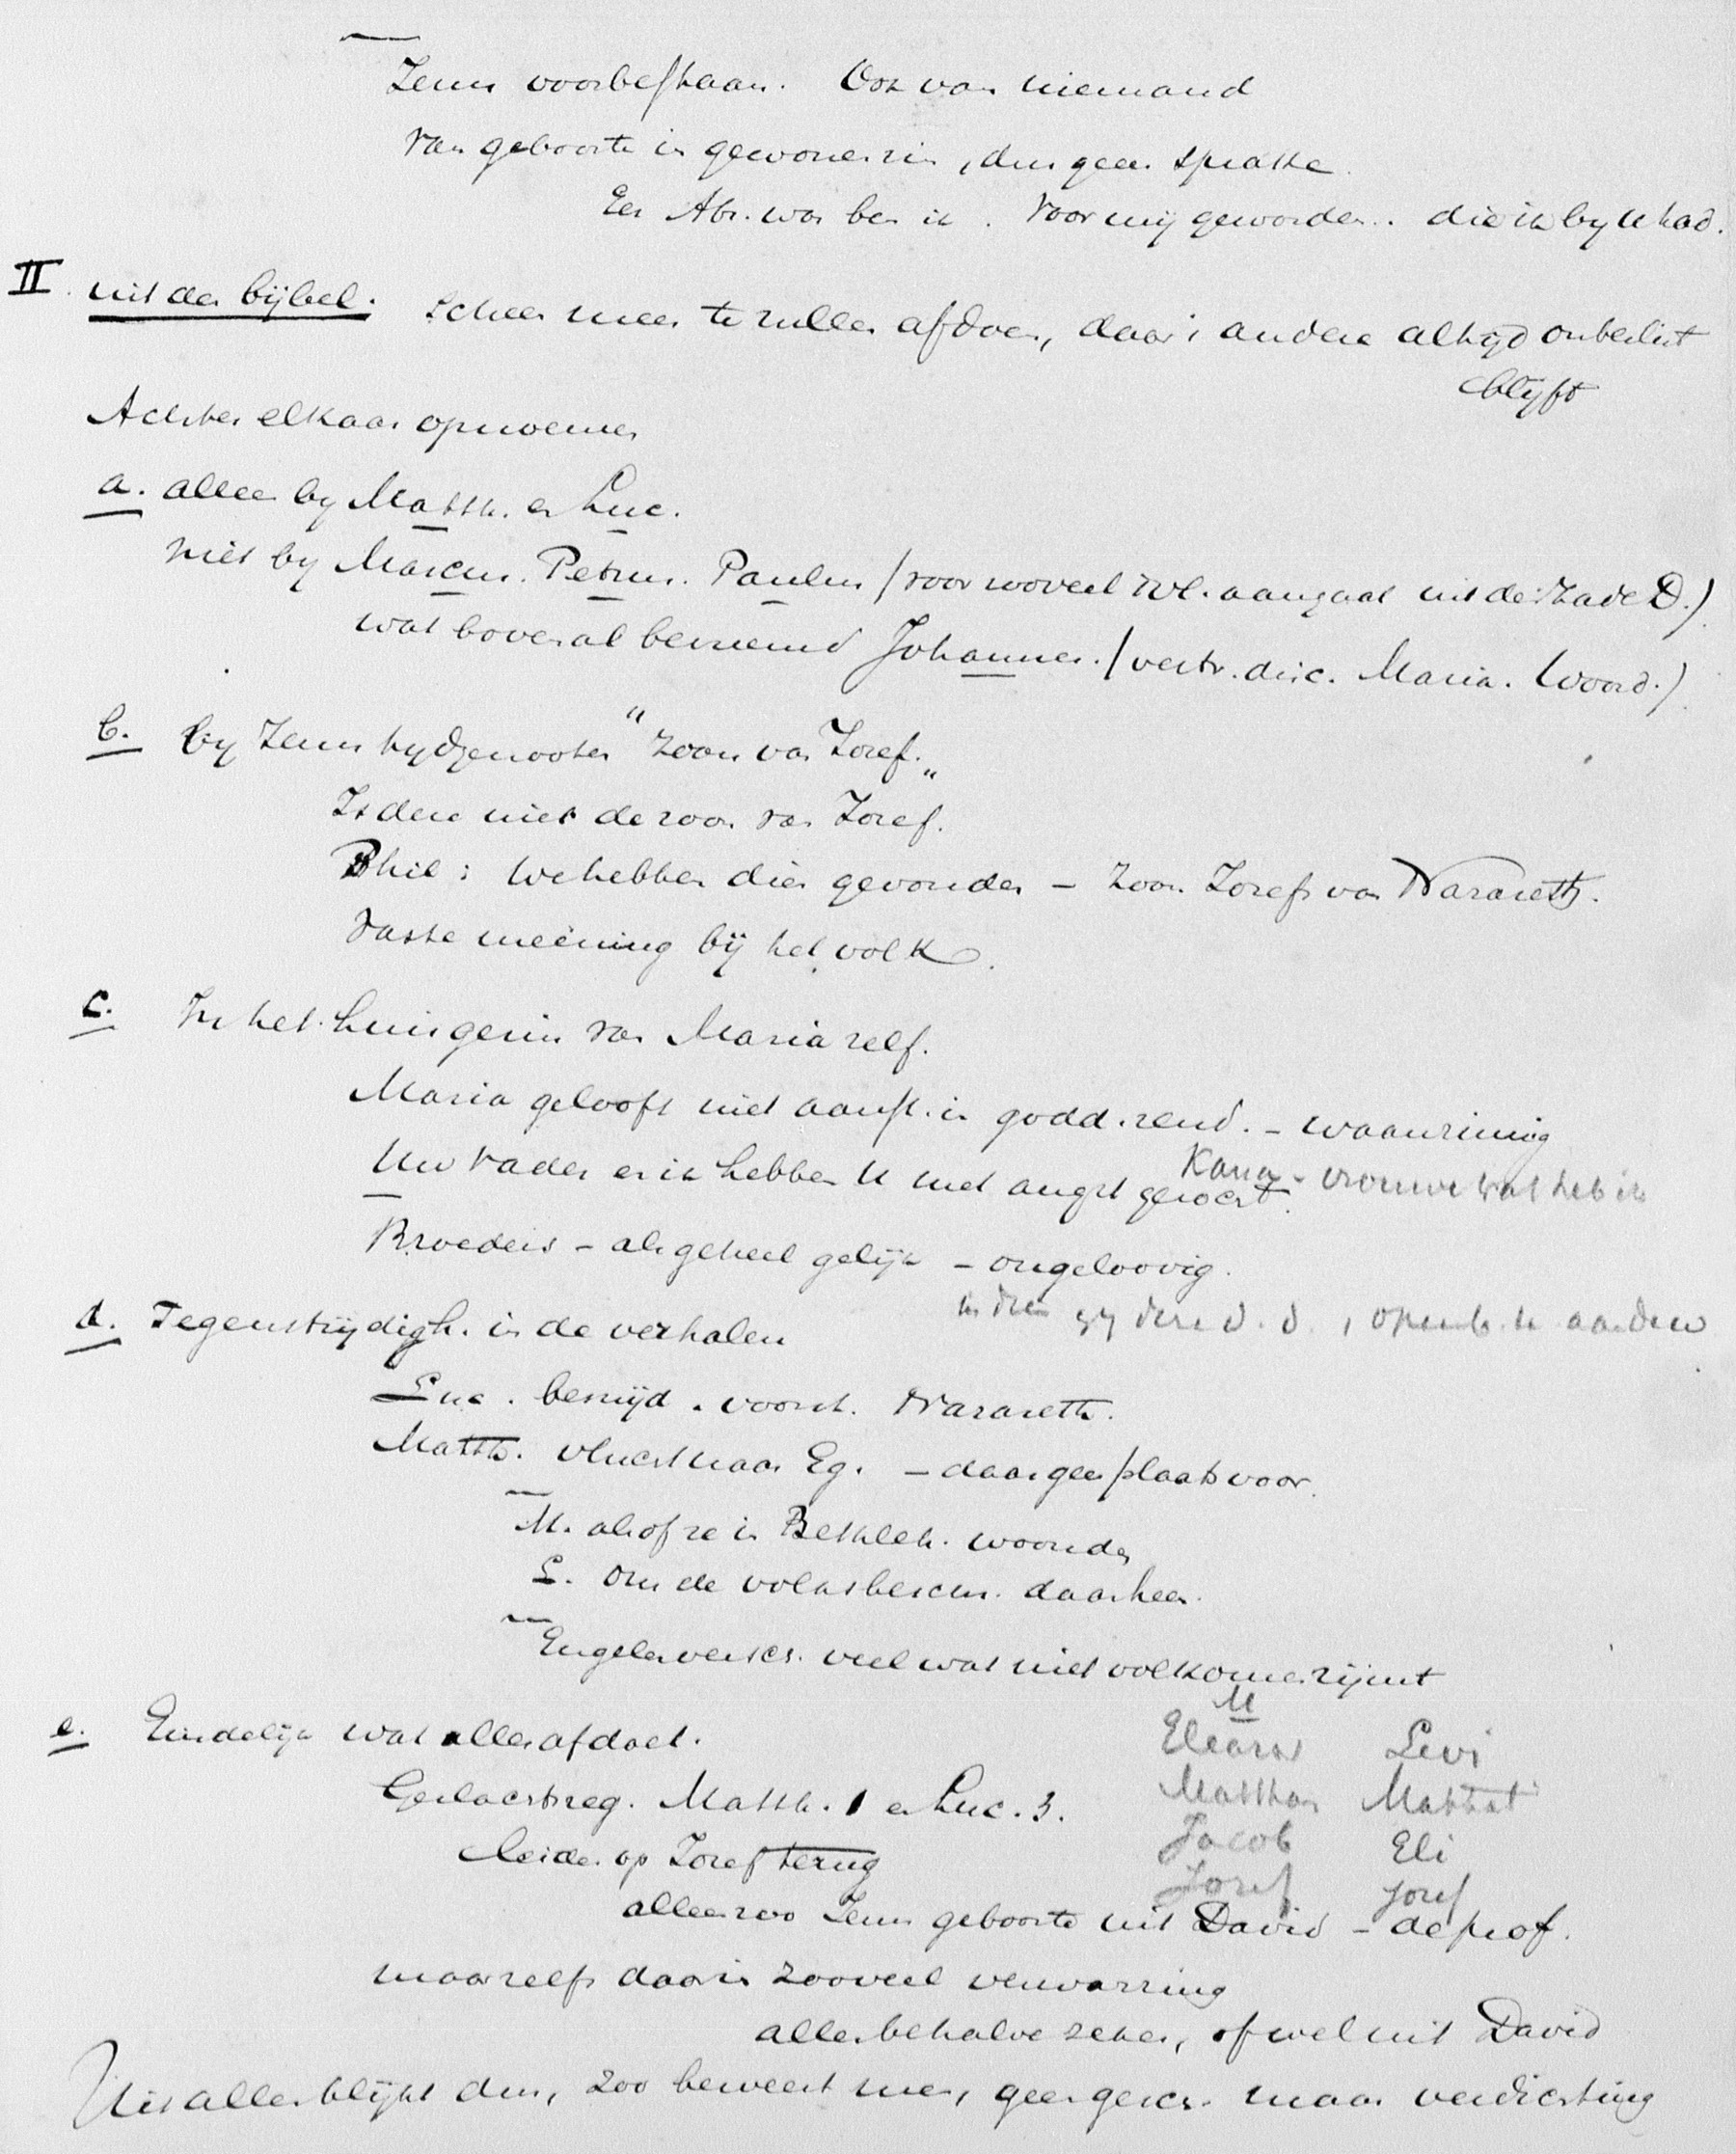 Jezus voorbestaan. Ook van niemand
van geboorte in gewonen zin, dus geen sprake.
Eer Abr. was ben ik. Voor mij geworden.. die ik by U had.
II. uit den bijbel. Scheen men te zullen afdoen, daar 't andere altyd onbeslist
blyft
Achter elkaar opnoemen
a. alleen by Matth. en Luc.
niet by Marcus. Petrus. Paulus (voor zooveel Rom. aangaat uit de zade D.)
wat bovenal bevreemd Johannes. (vertr. disc. Maria. Woord.)
b. by Jezus tydgenooten "zoon van Jozef."
Is deze niet de zoon van Jozef.
Phil: We hebben dien gevonden – Zoon Jozefs van Nazareth.
vaste meening bij het volk.
c. In het huisgezin van Maria zelf.
Maria gelooft niet aanst. in godd. zend. – waanzinnig
Kana – vrouwe wat heb ik
Uw vader en ik hebben U met angst gezocht.
Broeders – als geheel gelijk – ongeloovig.
indien gij deze d. d., openb. U aan de w
d. Tegenstrijdigh. in de verhalen
Luc. besnijd. voorst. Nazareth.
Matth. vlucht naar Eg. – daar geen plaats voor.
M. alsof ze in Bethleh. woonden
L. om de volksbeschr. daarheen.
Engelenversch. veel wat niet volkomen rijmt
e. Eindelijk wat alles afdoet.
M
Eleazar Levi
Geslachtsreg. Matth. 1 en Luc. 3.
Matthan Matthat
Jacob Eli
leiden op Jozef terug
Jozef Jozef
alleen zoo Jezus geboorte uit David – de prof.
maar zelfs daarin zooveel verwarring
alles behalve zeker, of wel uit David
Uit alles blijkt dus, zoo beweert men, geen gesch. maar verdichting